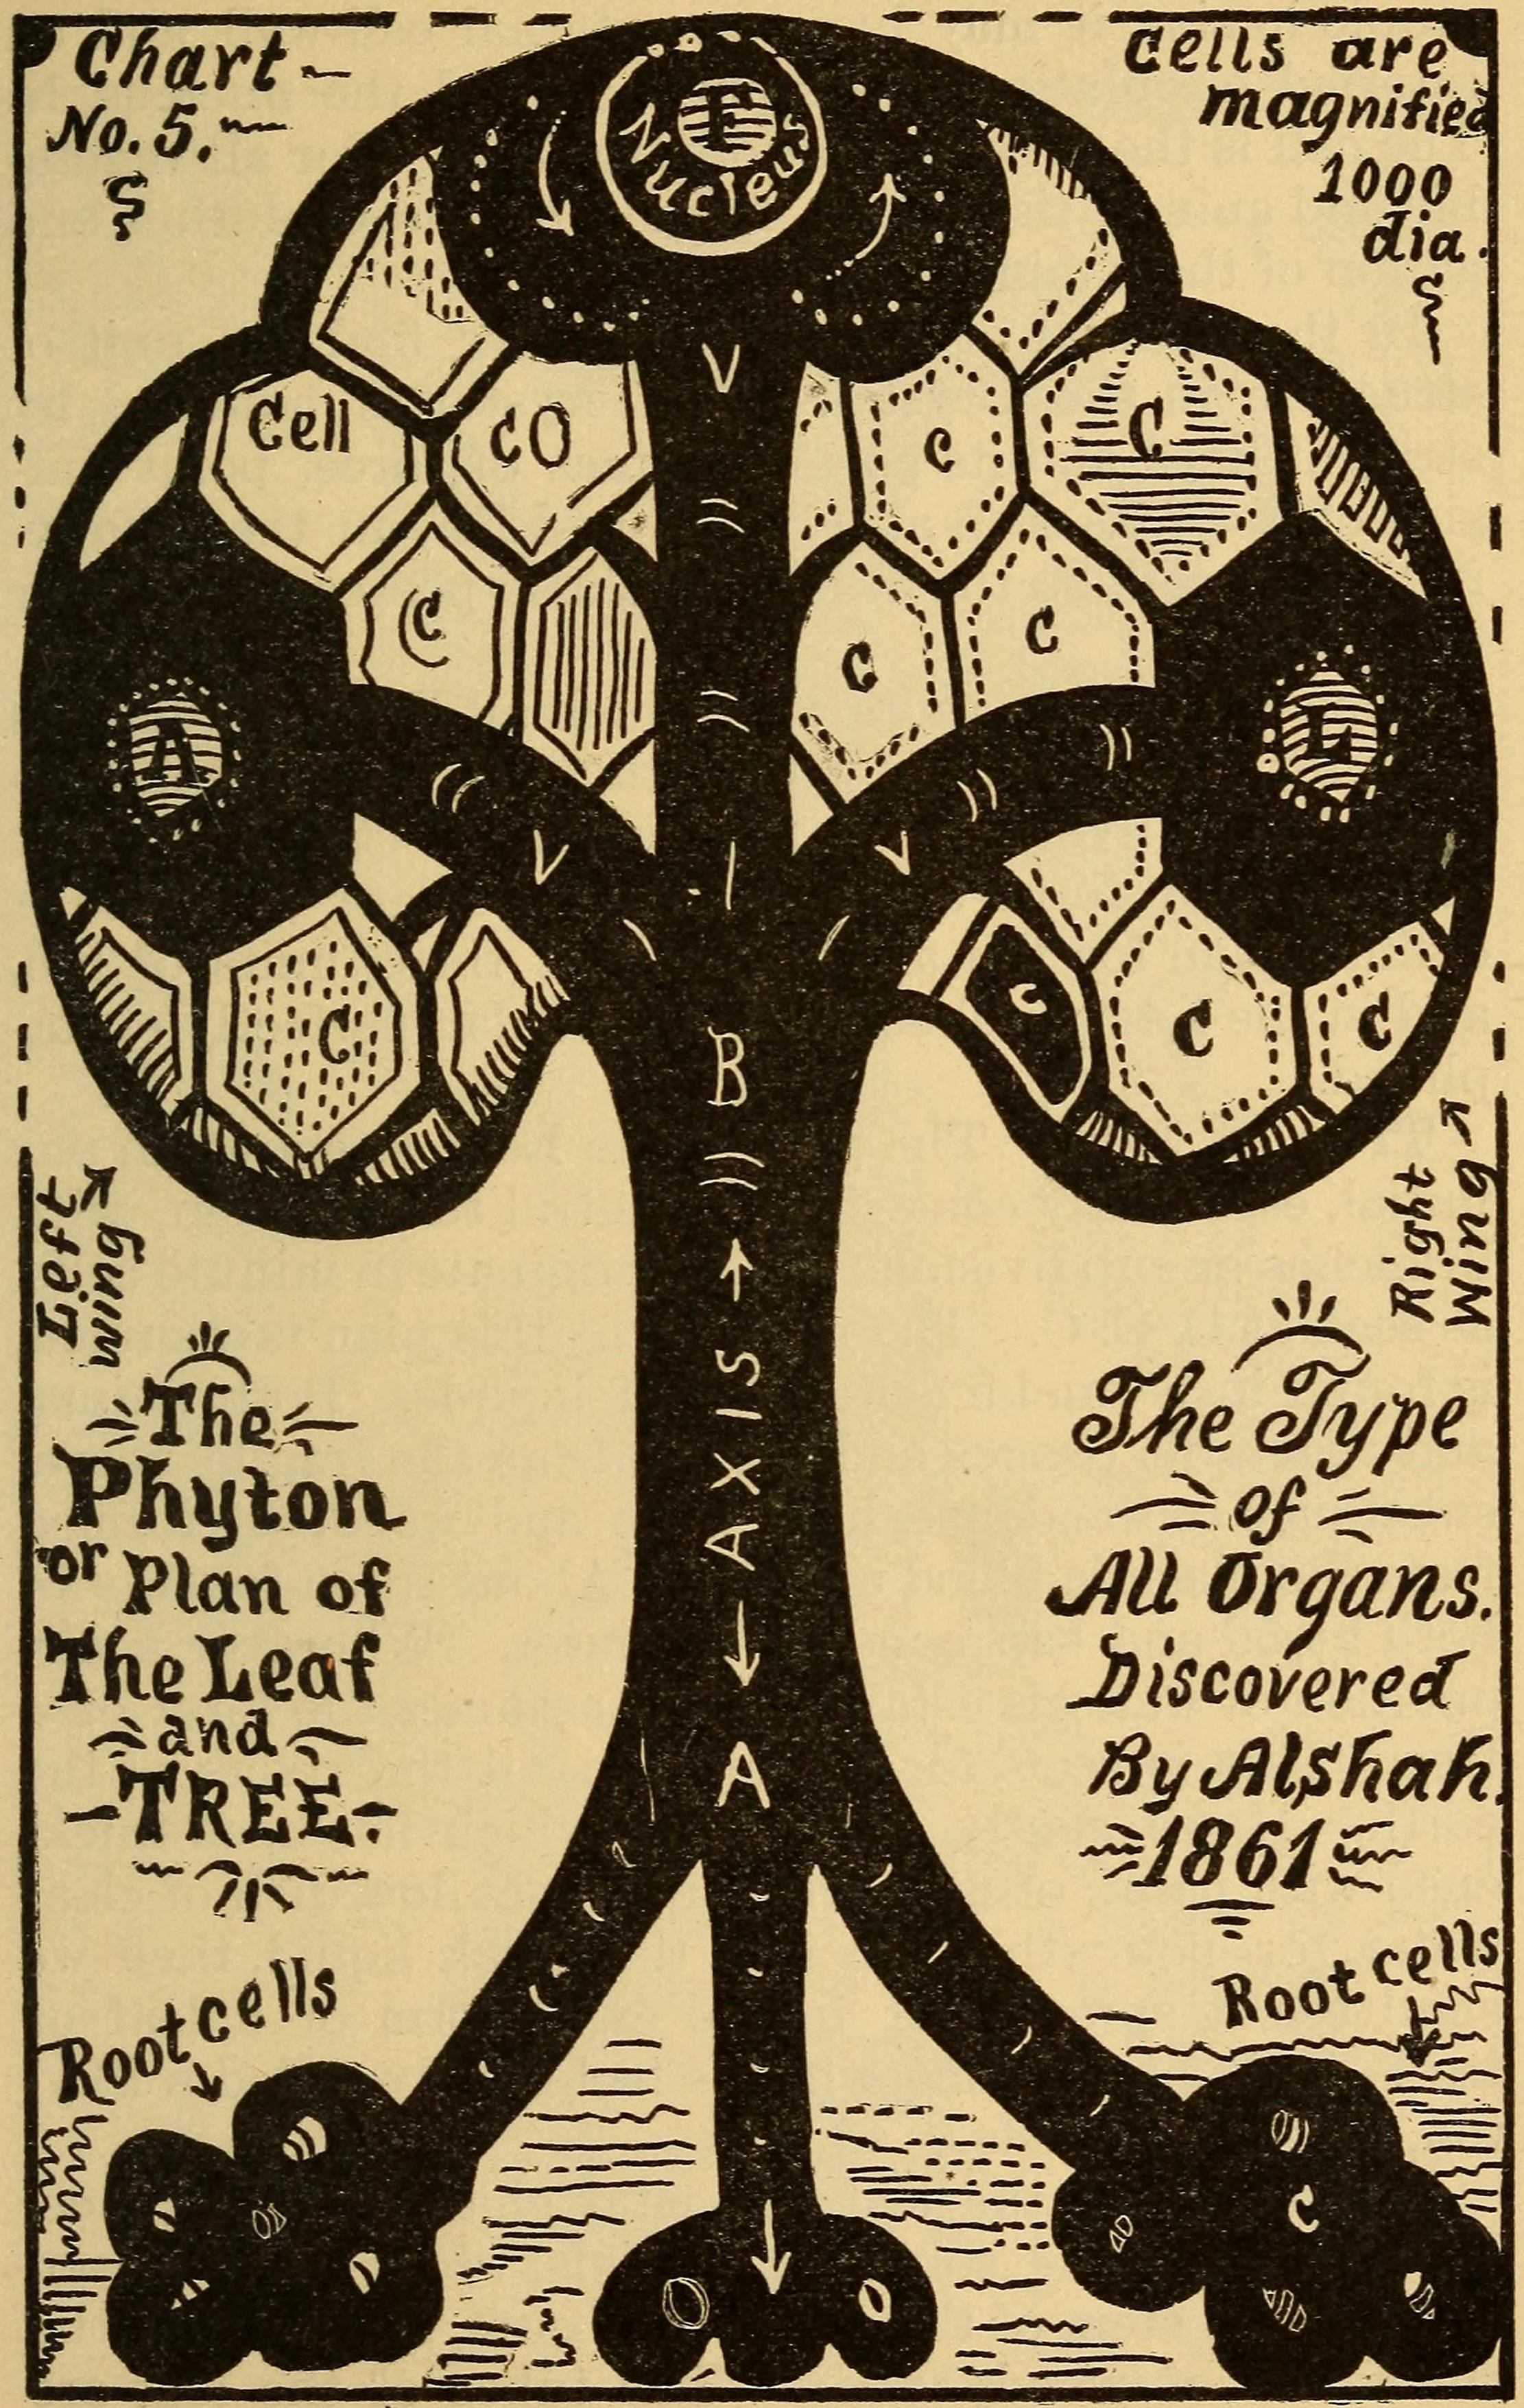 Chart
No. 5.
Cells are
magnified
1000
dia.
F
Nucleus
V
Cell
CO
C
C
C
C
C
A
L
V
V
I
C
C
C
C
B
Left
wing
Right
Wing
AXIS
The
Phyton
or Plan of
The Leaf
and
TREE
The Type
of
All Organs.
Discovered
By Alshah.
1861
A
Root cells
Root cells
C